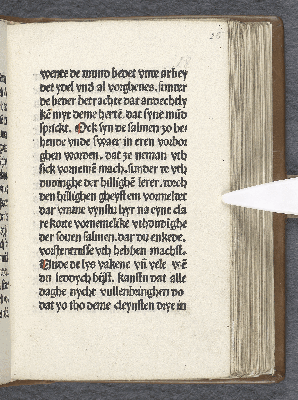 wente de mund bedet vnne arbey
det ydel vnd al vorgheues. sunder
de beder betrachte dat andechtlyk
myt deme herte. dat syne mūd
sprickt. Ock syn de salmen so be
hende vnde swaer in eren vorbor
ghen worden. dat ze neman vth
sick vornemē mach. sunder te vth
dudinghe der hillighē lerer. welch
den hillighen gheyst en vormeldet
dar vmme vynstu hyr na eyne cla
re korte vornemelike vthdudighe
der souen salmen. dar du enkede.
vorstentnisse vth hebben machst.
Unde de lys vakene vn̄ vele wē
du leddych byst. kanstu dat alle
daghe nycht vullenbringhen so
dat yo tho deme cleynsten drye in